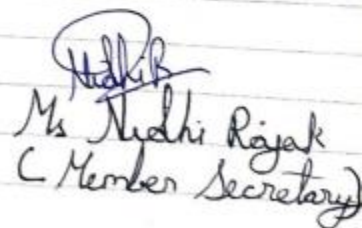 NidhiR
Ms Nidhi Rajak
(Member Secretary)